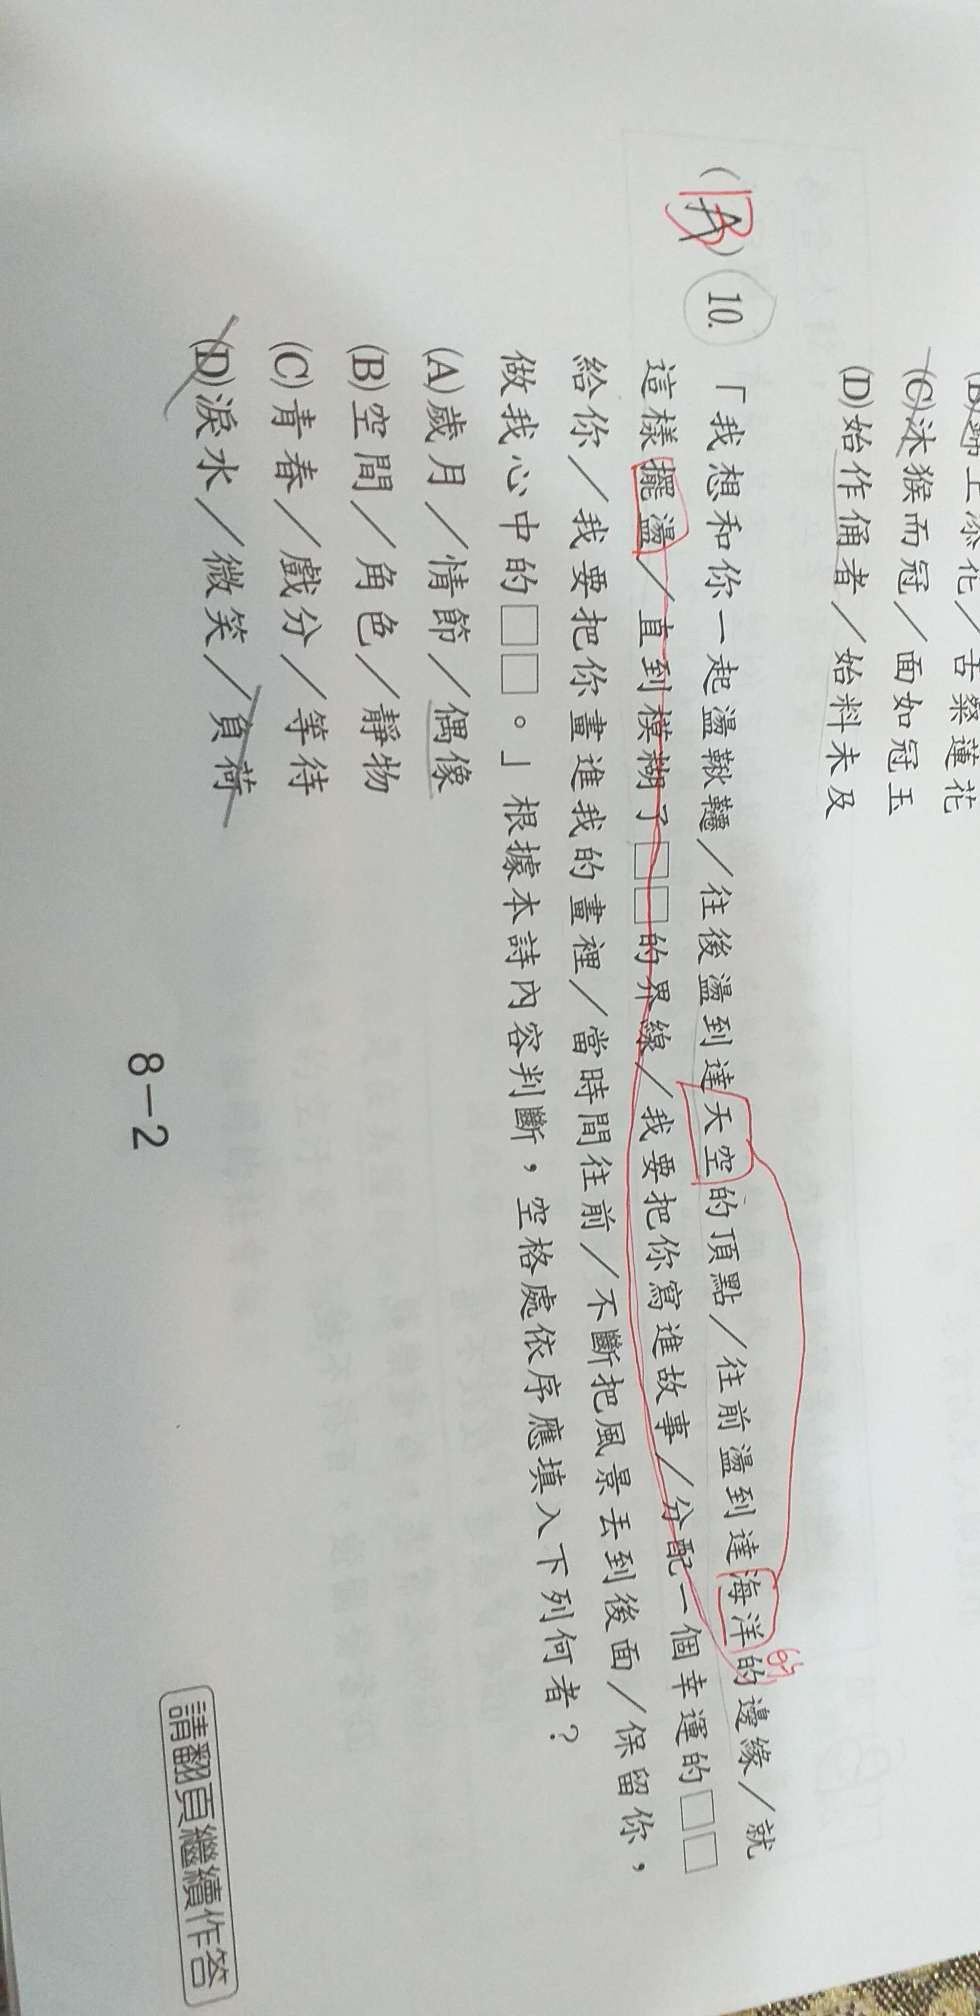 (B)錦上添花／舌粲蓮花
(C)沐猴而冠／面如冠玉
(D)始作俑者／始料未及
(B) 10.「我想和你一起盪鞦韆／往後盪到達天空的頂點／往前盪到達海洋的邊緣／就
的
這樣擺盪／直到模糊了□□的界線／我要把你寫進故事／分配一個幸運的□□
給你／我要把你畫進我的畫裡／當時間往前／不斷把風景丟到後面／保留你，
做我心中的□□。」根據本詩內容判斷，空格處依序應填入下列何者？
(A)歲月／情節／偶像
(B)空間／角色／靜物
(C)青春／戲分／等待
(D)淚水／微笑／負荷
8－2
請翻頁繼續作答